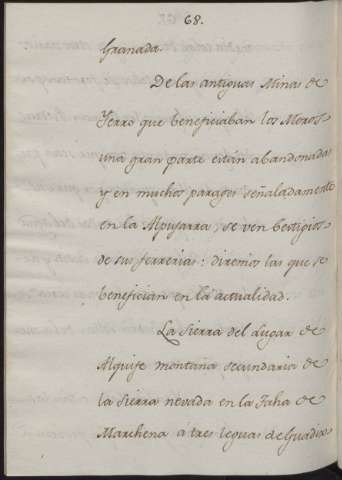 68.
Granada.
De las antiguas Minas de
Ferro que beneficiaban los Moros
una gran parte están abandonadas
y en muchos parages señaladamente
en la Alpujarra, se ven bestigios
de sus ferrerias: diremos las que se
benefician en la actualidad.
La Sierra del Lugar de
Alquife montaña secundaria de
la Sierra nevada en la Taha de
Marchena á tres leguas de Guadix